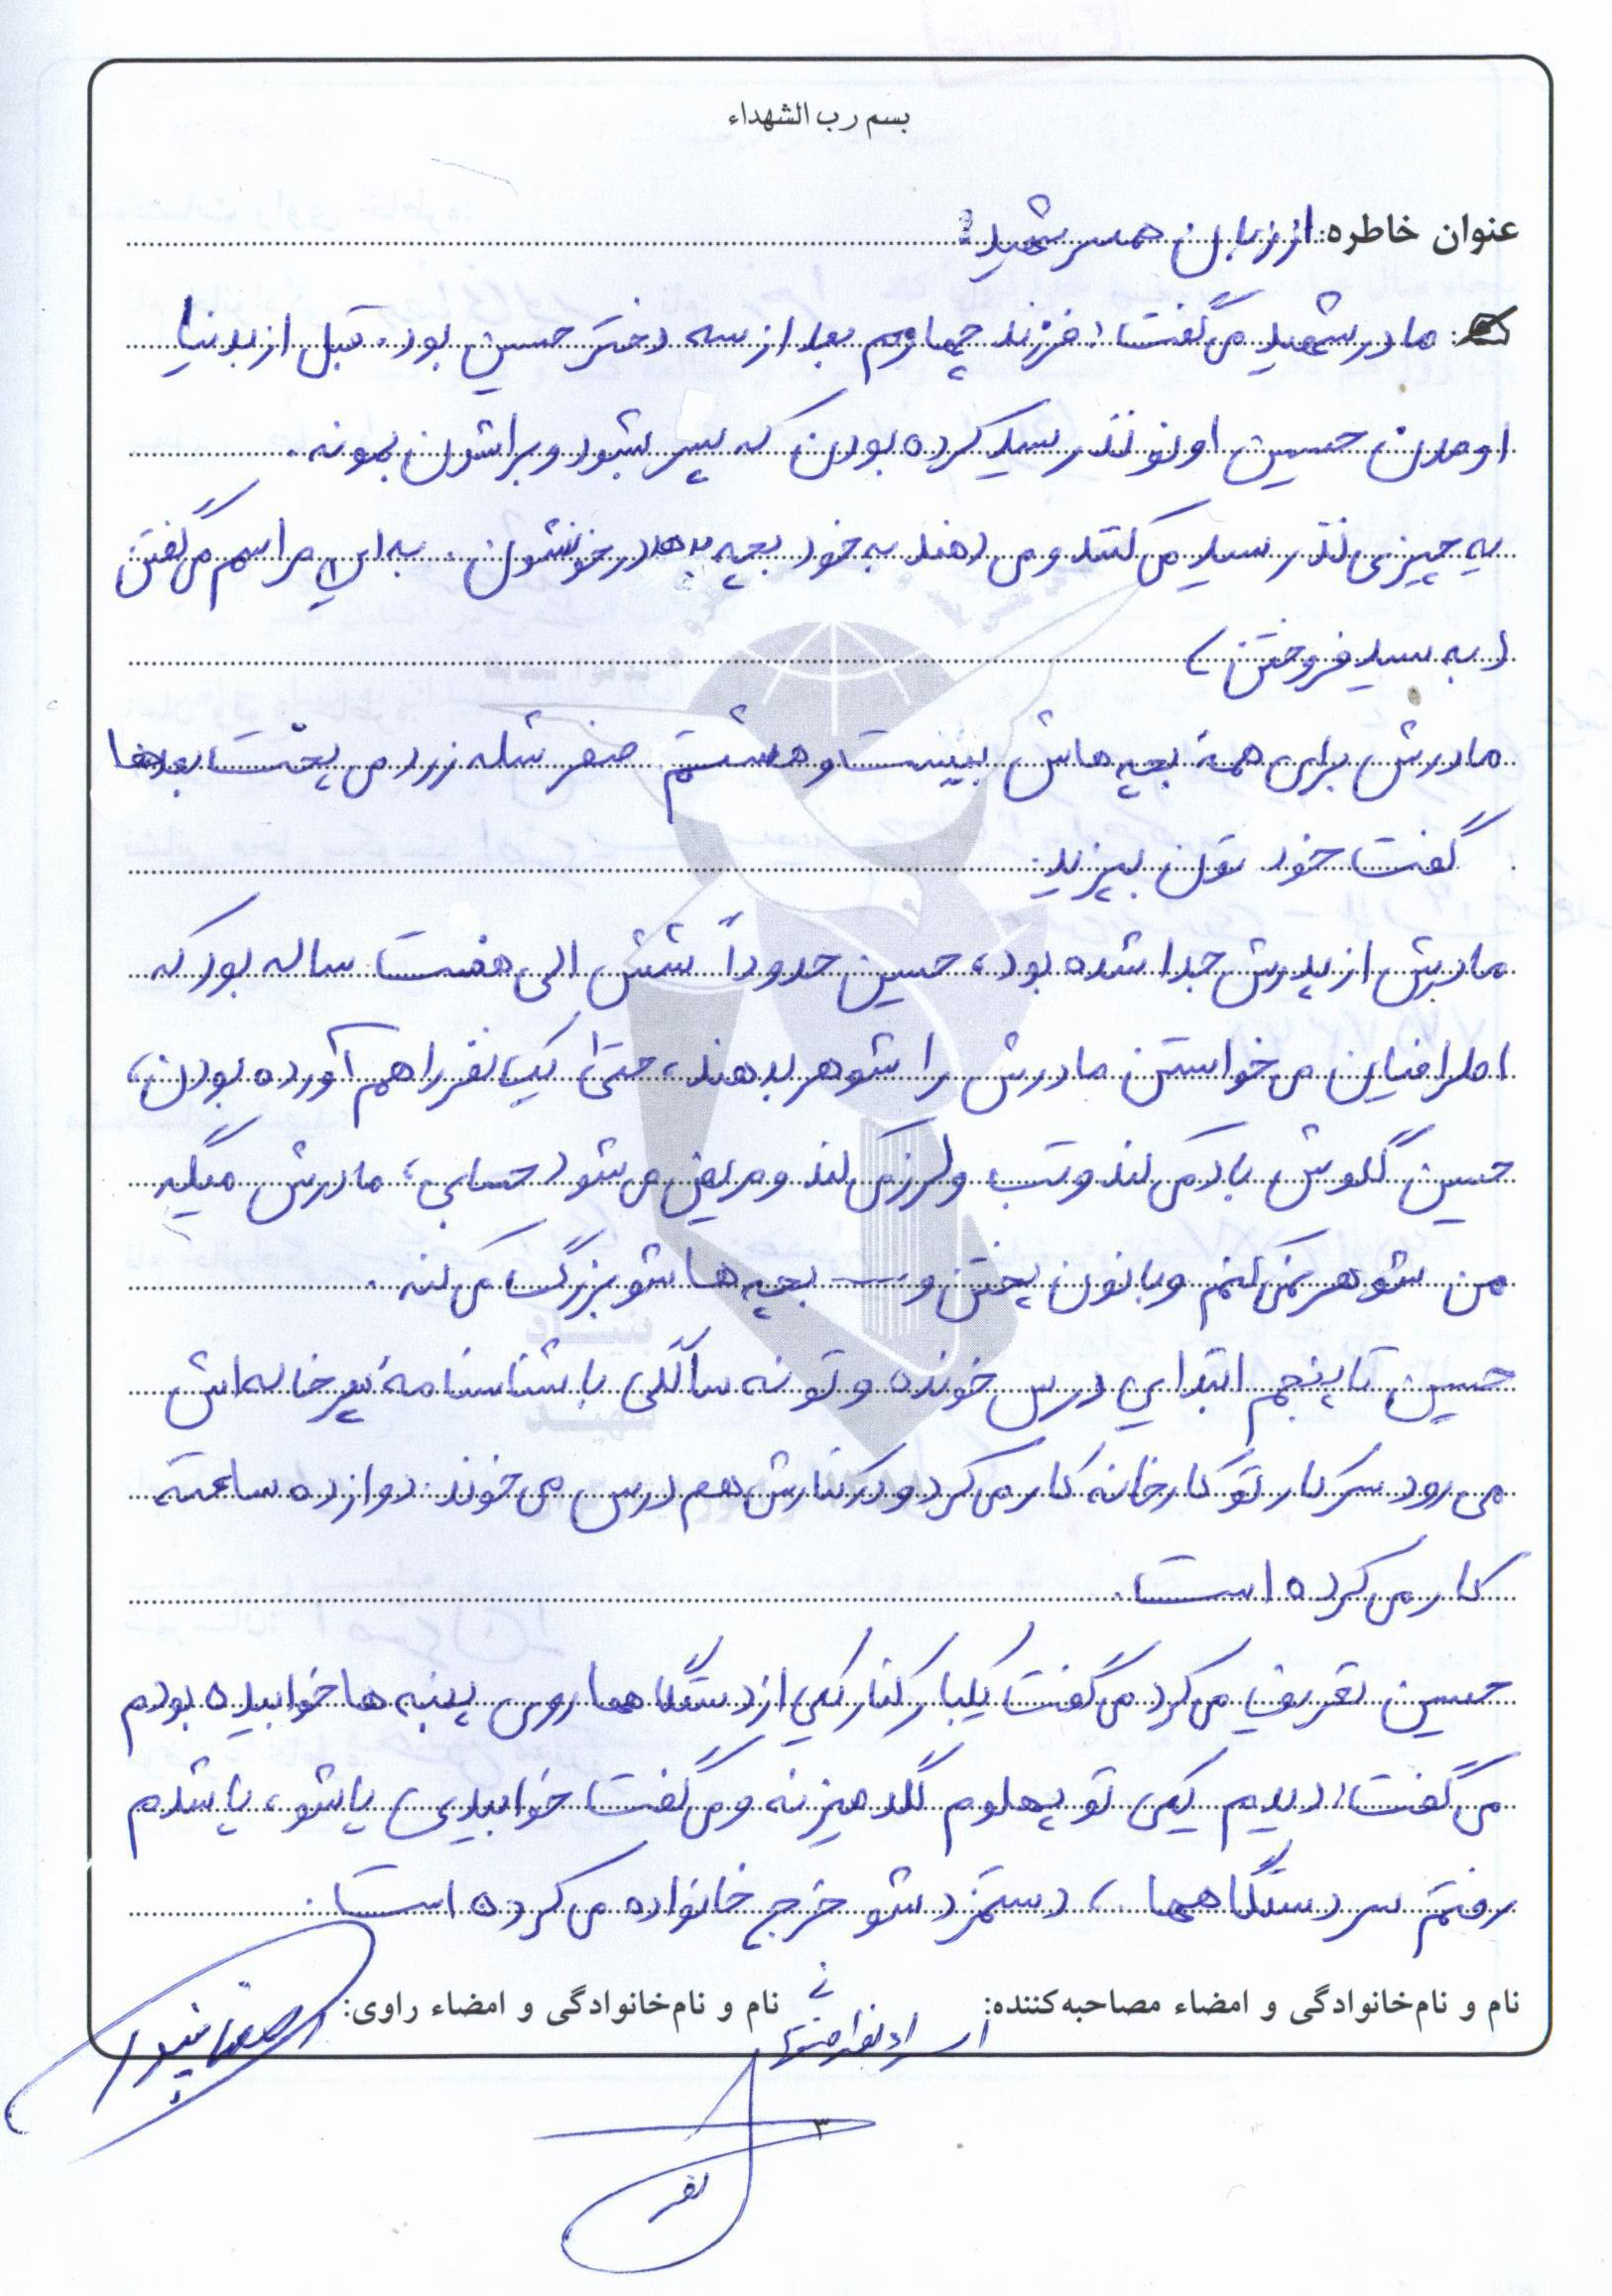 بسم رب الشهداء
عنوان خاطره: از زبان همسر شهید:
مادر شهید می گفت: فرزند چهارم بعد از سه دختر حسین بود. قبل از بدنیا
اومدن حسین اونو نذر سید کرده بودن که پسر بشود و براشون بمونه.
یه چیزی نذر سید می کنند و می دهند به خود بچه بعد در خونشون. به این مراسم می گفتن
(به سید فروختن)
مادرش برای همهٔ بچه هاش بیست و هشتم صفر شله زرد می پخت بعدها
گفت خودتون بپزید.
مادرش از پدرش جدا شده بود، حسین حدوداً شش الی هفت ساله بود که
اطرافیان می خواستن مادرش را شوهر بدهند، حتی یک نفر را هم آورده بودن،
حسین گلوش باد می کند و تب و لرز می کند و مریض می شود حسابی، مادرش میگه
من شوهر نمی کنم و با نون پختن و بچه هاشو بزرگ می کنه.
حسین تا پنجم ابتدایی درس خونده و تو نه سالگی با شناسنامهٔ پسر خاله اش
می رود سر کار تو کارخانه کار می کرد و در کنارش هم درس می خوند. دوازده ساعته
کار می کرده است.
حسین تعریف می کرد می گفت یکبار کنار یکی از دستگاهها روی پنبه ها خوابیده بودم
می گفت: دیدم یکی تو پهلوم لگد میزنه و می گفت خوابیدی پاشو، پاشدم
رفتم سر دستگاهها، دستمزدشو خرج خانواده می کرده است.
نام و نام‌خانوادگی و امضاء مصاحبه‌کننده:
نام و نام‌خانوادگی و امضاء راوی:
۳